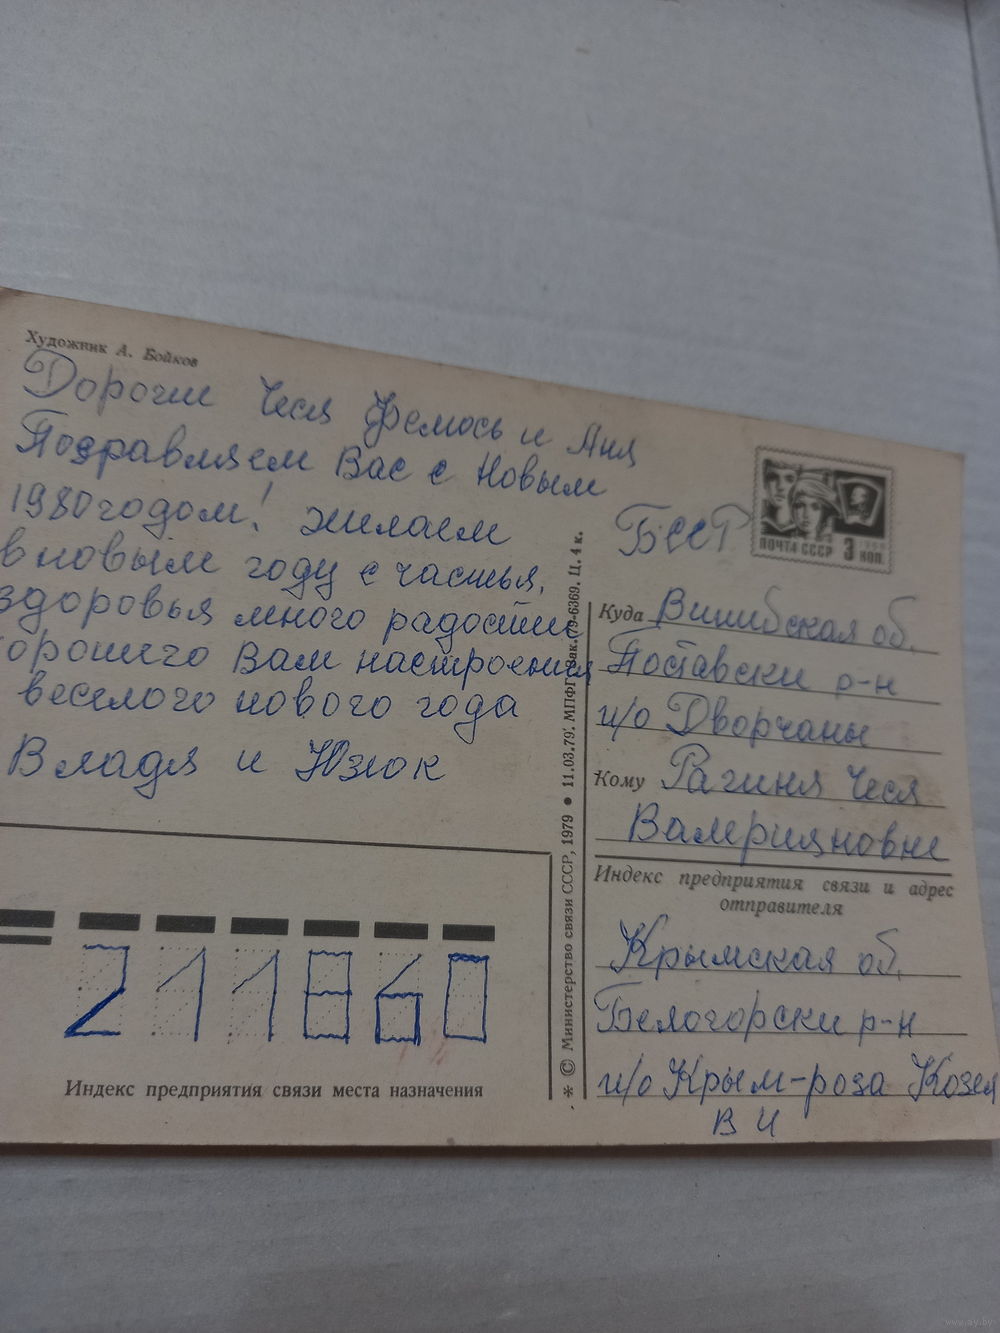 Художник А. Бойков
Дорогие Чеся Фемось и Аня
Подравляем Вас с Новым
1980 годом! жилаем
в новым году счастья,
здоровья много радости
хорошиго Вам настроения
веселого нового года
Владя и Юзюк
Индекс предприятия связи места назначения
211860
* © Министерство связи СССР, 1979 • 11.03.79. МПФГ. Зак. 79-6369. Ц. 4 к.
ПОЧТА СССР 3 КОП
БССР
Куда Витибская об.
Поставски р-н
п/о Дворчаны
Кому Рагиня Чеся
Валерияновне
Индекс предприятия связи и адрес
отправителя
Крымская об.
Белогорски р-н
п/о Крым-роза Козел
В И
www.ay.by